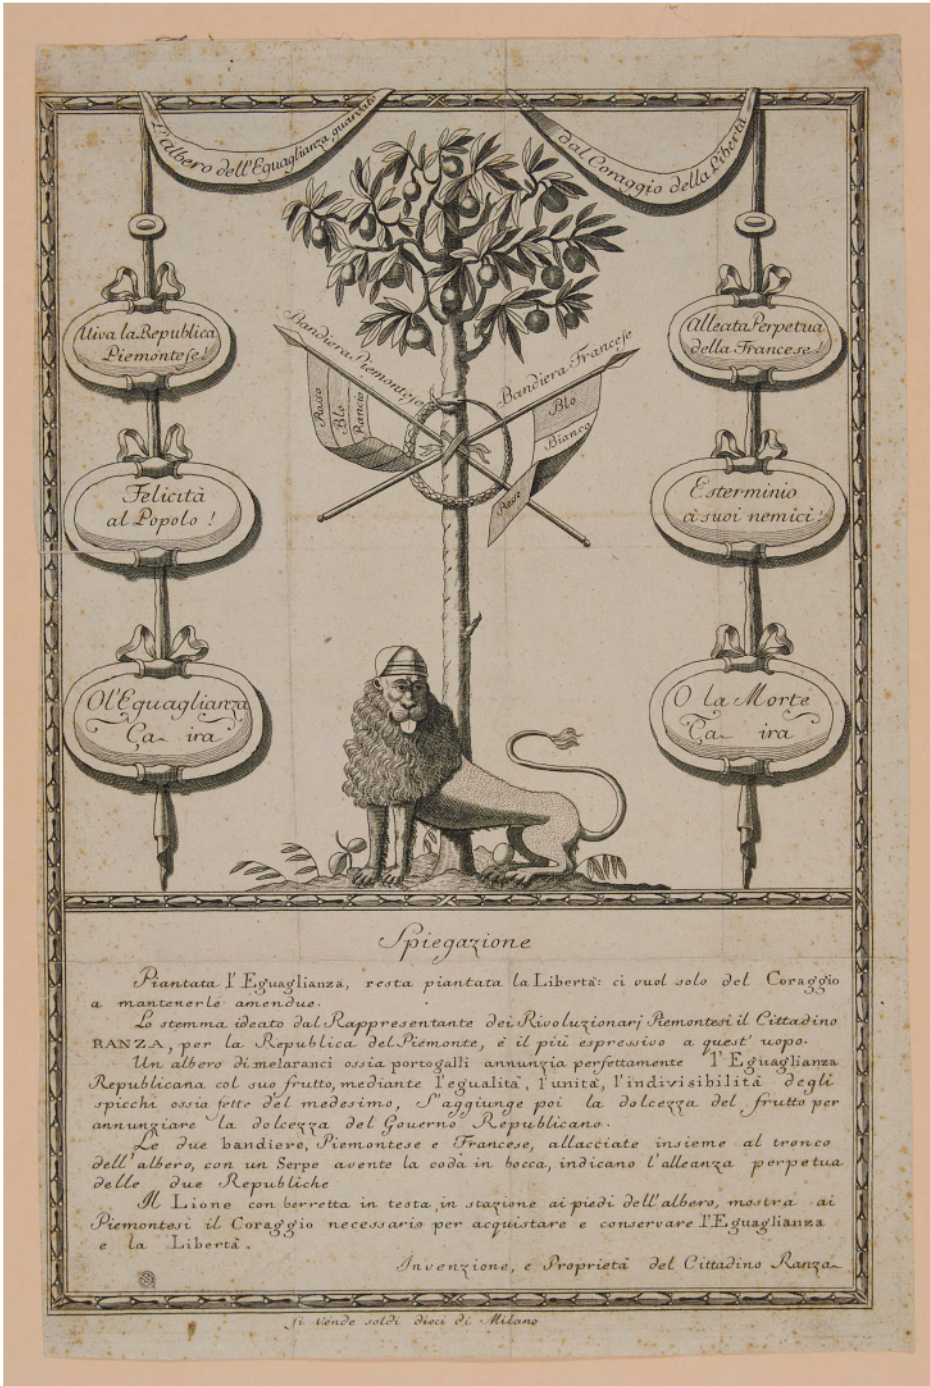 L'albero dell'Eguaglianza, guardato
dal Coraggio della Libertà
Viva la Republica
Piemontese!
Alleata Perpetua
della Francese!
Bandiera Piemontese
Rosso
Blo
Rancio
Bandiera Francese
Blo
Bianco
Rosso
Felicità
al Popolo!
Esterminio
a' suoi nemici!
O l'Eguaglianza
Ça ira
O la Morte
Ça ira
Spiegazione
Piantata l'Eguaglianza, resta piantata la Libertà: ci vuol solo del Coraggio
a mantenerle amendue.
Lo stemma ideato dal Rappresentante dei Rivoluzionarj Piemontesi il Cittadino
RANZA, per la Republica del Piemonte, è il più espressivo a quest' uopo.
Un albero di melaranci ossia portogalli annunzia perfettamente l'Eguaglianza
Republicana col suo frutto, mediante l'egualità, l'unità, l'indivisibilità degli
spicchi ossia fette del medesimo, S'aggiunge poi la dolcezza del frutto per
annunziare la dolcezza del Governo Republicano.
Le due bandiere, Piemontese e Francese, allacciate insieme al tronco
dell'albero, con un Serpe avente la coda in bocca, indicano l'alleanza perpetua
delle due Republiche
Il Lione con berretta in testa, in stazione ai piedi dell'albero, mostra ai
Piemontesi il Coraggio necessario per acquistare e conservare l'Eguaglianza
e la Libertà.
Invenzione, e Proprietà del Cittadino Ranza
Si vende soldi dieci di Milano